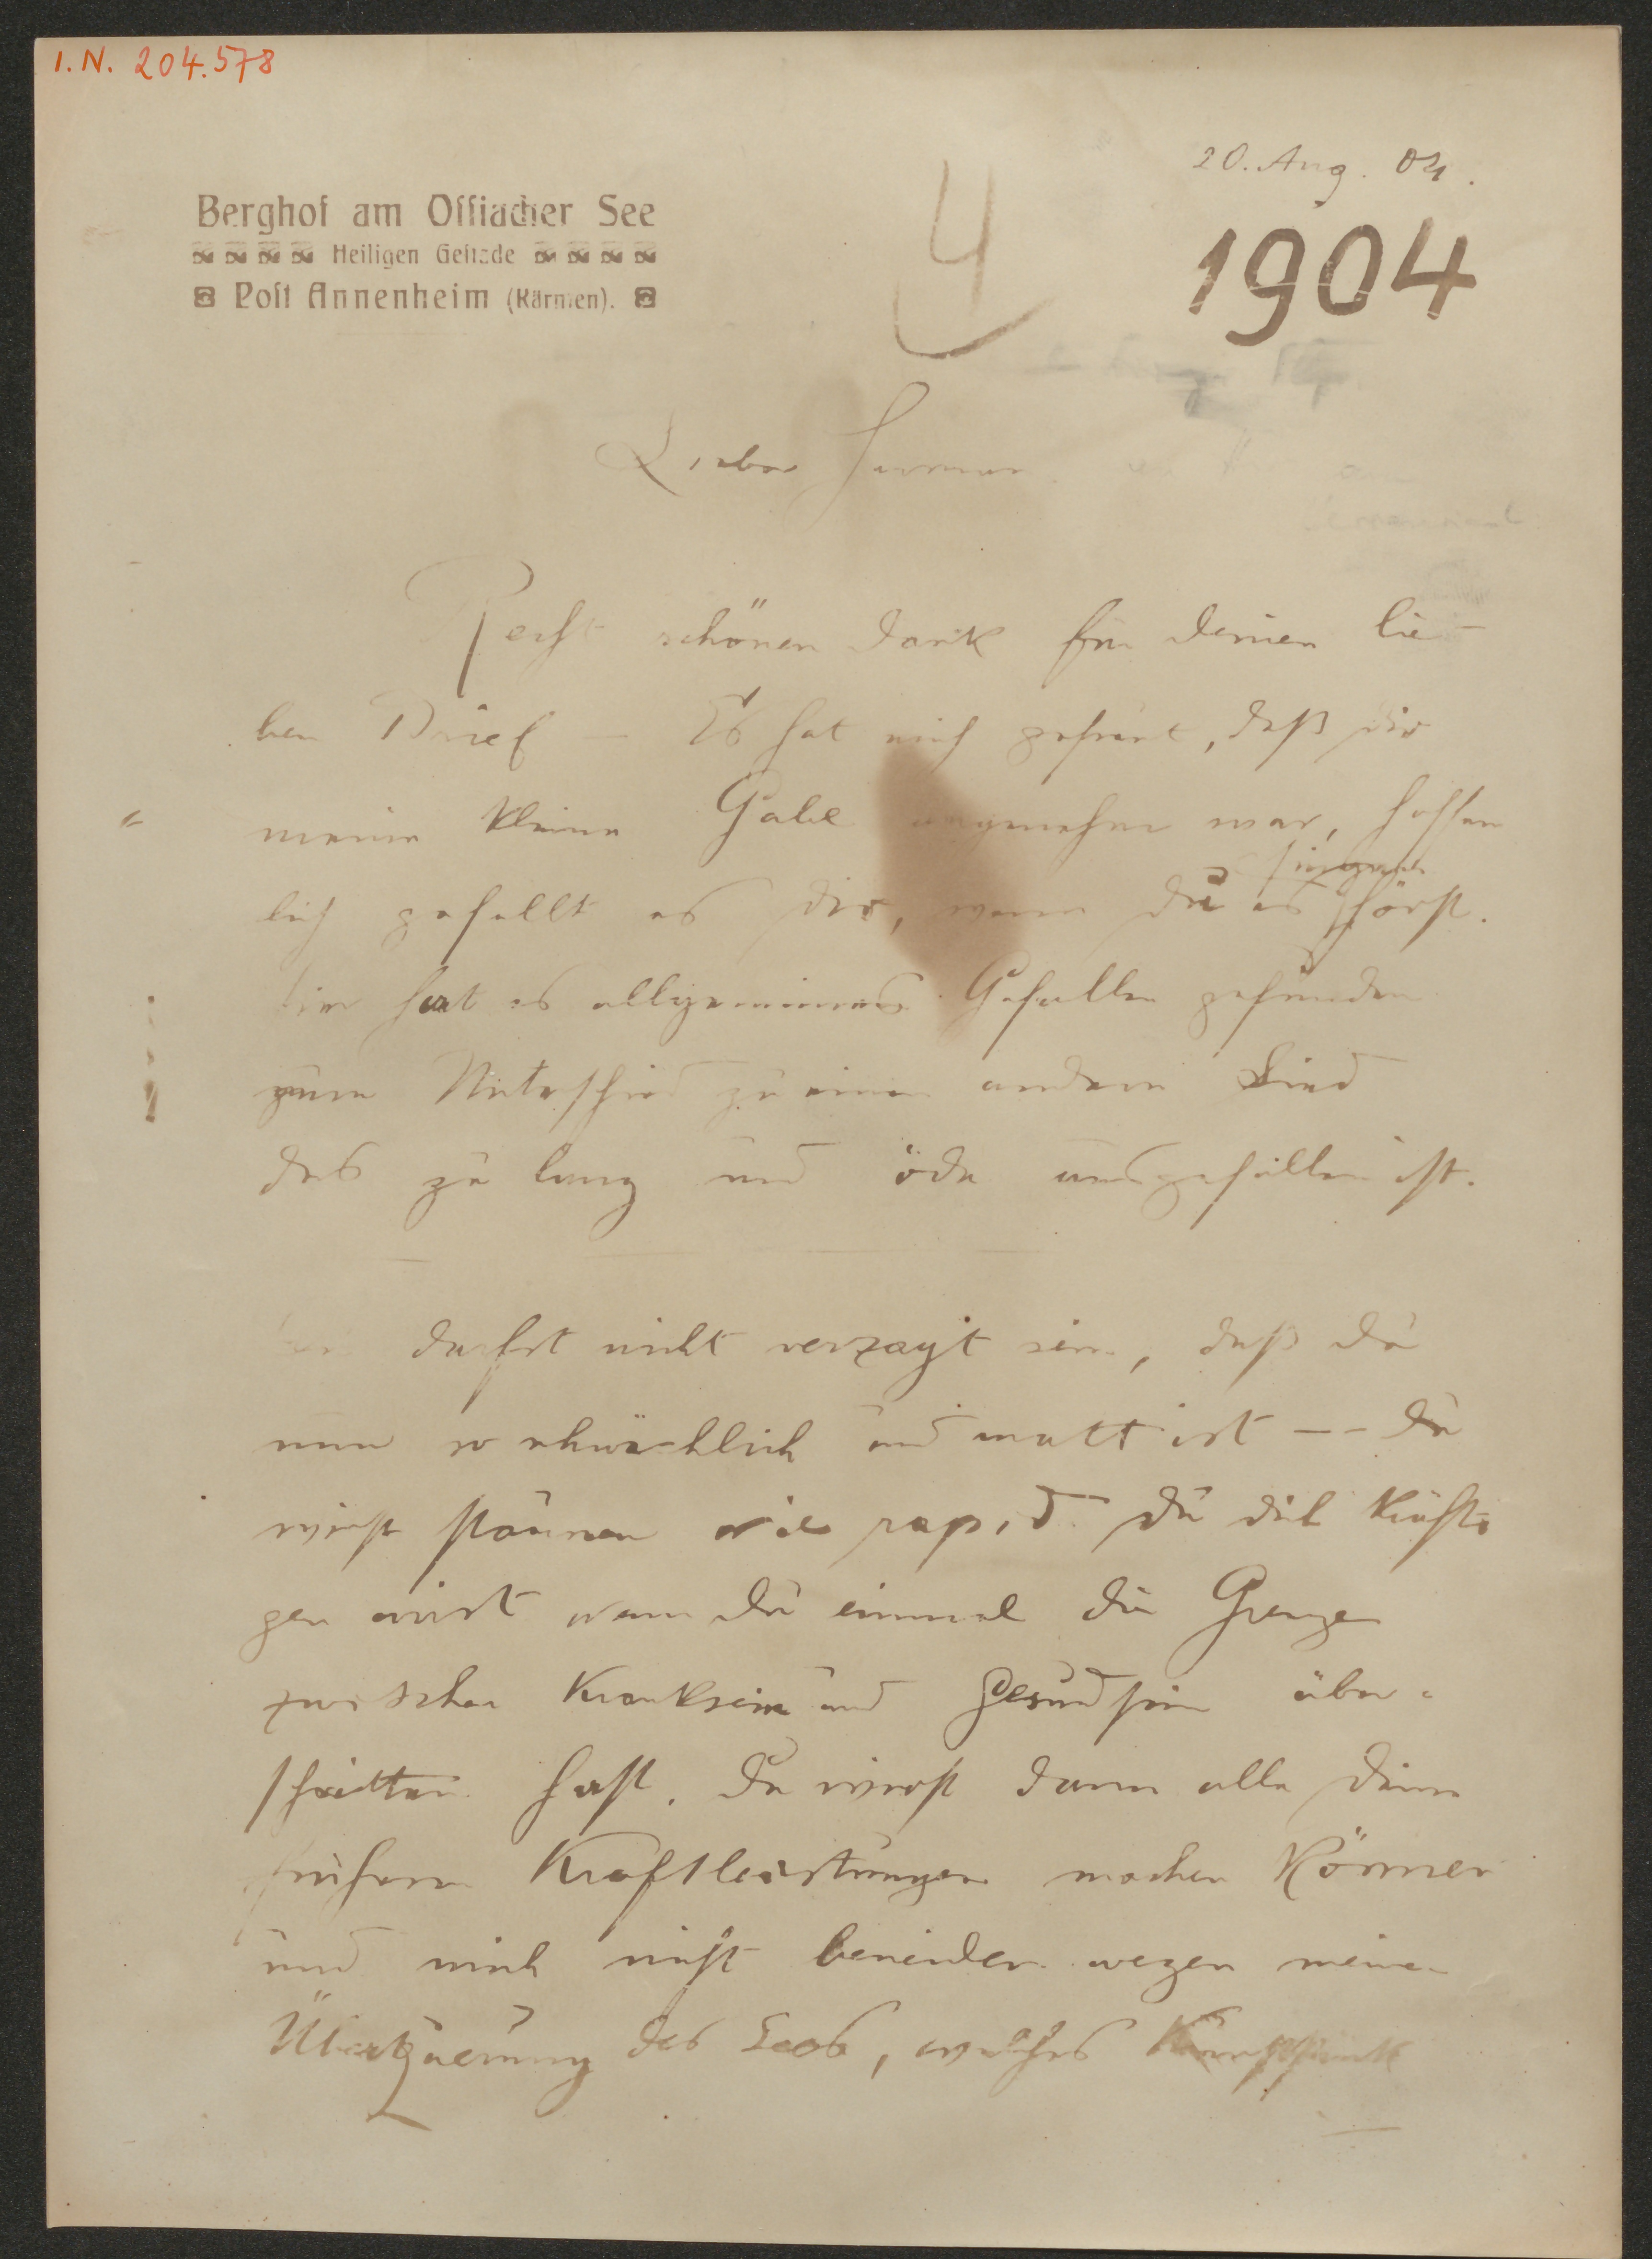 I. N. 204.578
20. Aug. 04.
Berghof am Ossiacher See
Heiligen Gestade
Post Annenheim (Kärnten).
4
1904
Lieber Herman
Recht schönen Dank für deinen lie-
ben Brief – Es hat mich gefreut, daß dir
meine kleine Gabe angenehm war, hoffen
lich gefällt es dir, wenn du es
singen
hörst.
hier hat es allgemeines Gefallen gefunden
zum Unterschied zu einem andern Lied
das zu lang und öde ausgefallen ist.
darfst nicht verzagt sein, daß du
nun so schwächlich und matt ist -- du
wirst staunen wie rapid du dich kräfti
gen wirst wenn du einmal die Grenze
zwischen Kranksein und Gesundsein über-
schritten hast. Du wirst dann alle deine
frühern Kraftleistungen machen können
und mich nicht beneiden wegen meiner
Überquerung des Sees, welches